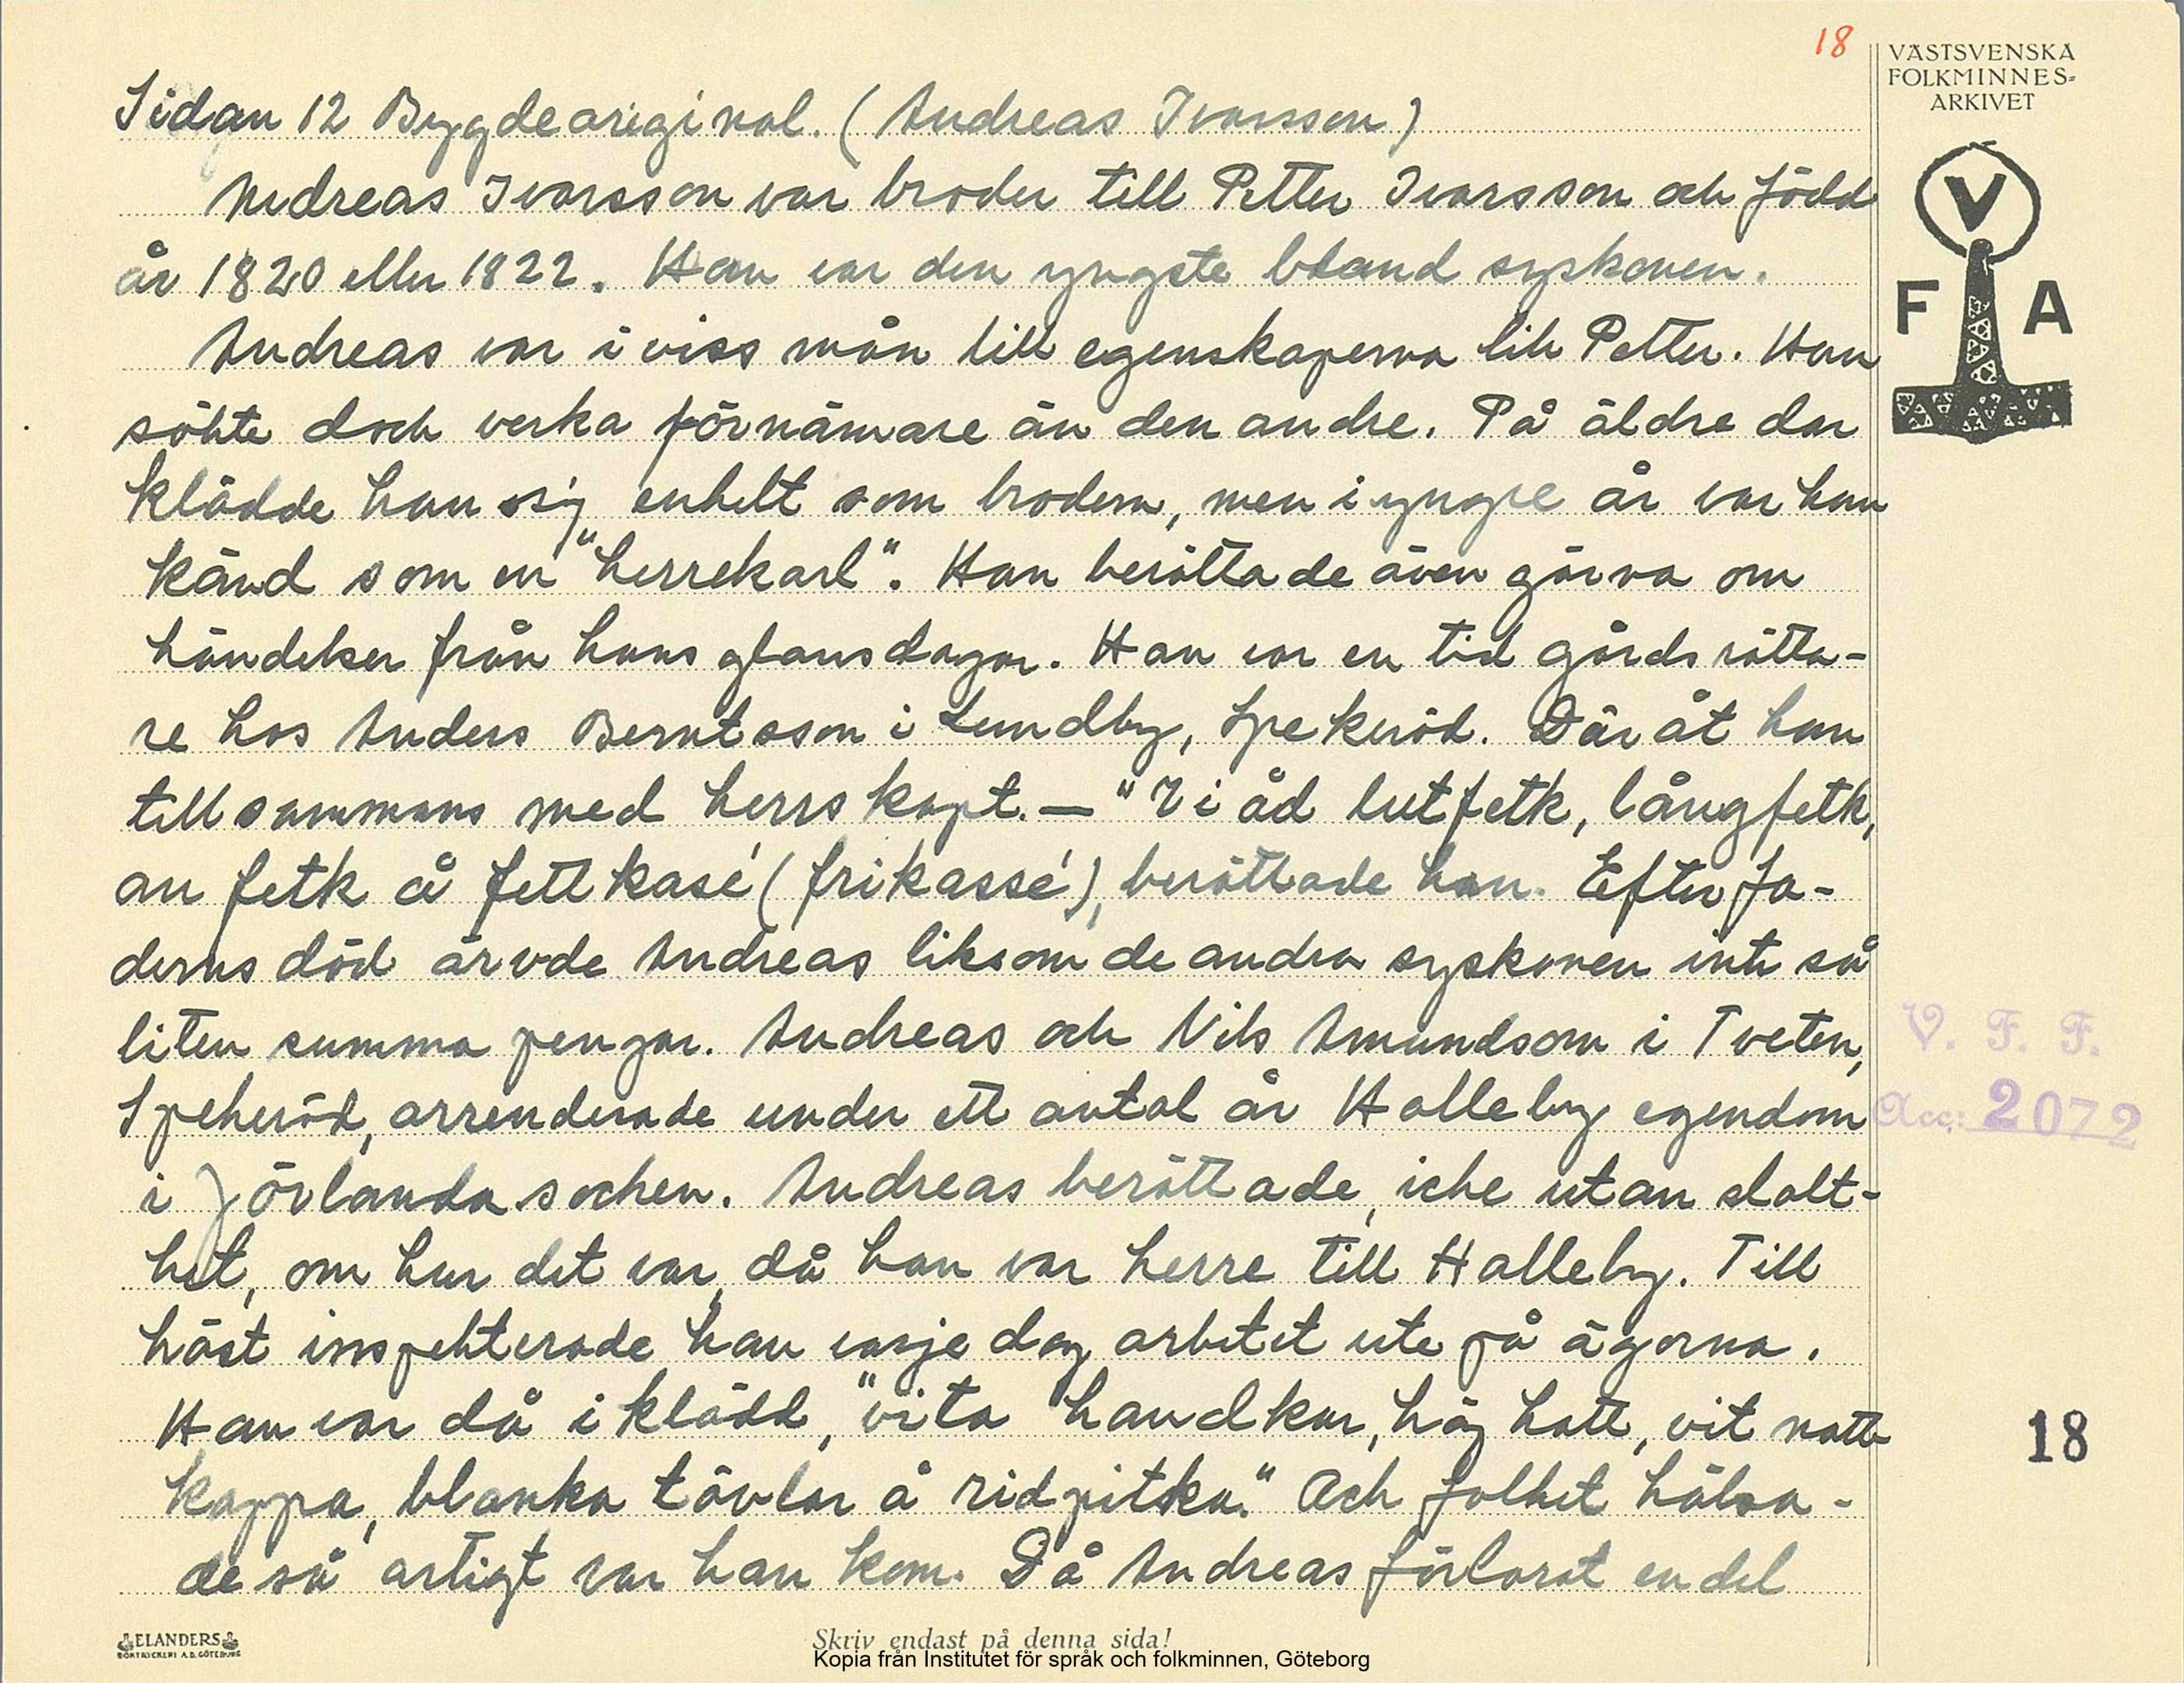 18
VÄSTSVENSKA
FOLKMINNES=
ARKIVET
V
F A
Sidan 12 Bygdeoriginal. (Andreas Ivarsson)
Andreas Ivarsson var broder till Petter Ivarsson och född
år 1820 eller 1822. Han var den yngste bland syskonen.
Andreas var i viss mån till egenskaperna lik Petter. Han
sökte doch verka förnämare än den andre. På äldre dar
klädde han sig enkelt som brodern, men i yngre år var han
känd som en "herrekarl". Han berättade även gärna om
händelser från hans glansdagar. Han var en tid gårdsrätta-
re hos Anders Berntsson i Lundby, Spekeröd. Där åt han
tillsammans med herrskapt. — "Vi åd lutfetk, långfetk,
an fetk å fettkasé (frikassé), berättade han. Efter fa-
derns död ärvde Andreas liksom de andra syskonen inte så
liten summa pengar. Andreas och Nils Amundsson i Tveten,
Spekeröd, arrenderade under ett antal år Halleby egendom
i Jörlanda socken. Andreas berättade, icke utan stolt-
het, om hur det var, då han var herre till Halleby. Till
häst inspekterade han varje dag arbetet ute på ägorna.
Han var då iklädd, "vita handkar, hög hatt, vit natt-
kappa, blanka tövlar å ridpitka." Och folket hälsa-
de så artigt var han kom. Då Andreas förlorat en del
V. F. F.
Acc: 2072
18
ELANDERS
BOKTRYCKERI A.B. GÖTEBORG
Skriv endast på denna sida!
Kopia från Institutet för språk och folkminnen, Göteborg